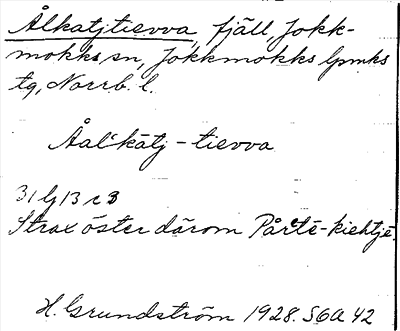 Ålkatjtievva, fjäll, Jokk-
mokks sn, Jokkmokks lpmks
tg, Norrb. l.
Åalˈkātj - tievva
31 lj 13 r 3
Strax öster därom Pårtē-kiehtje.
H. Grundström 1928. SGA 42